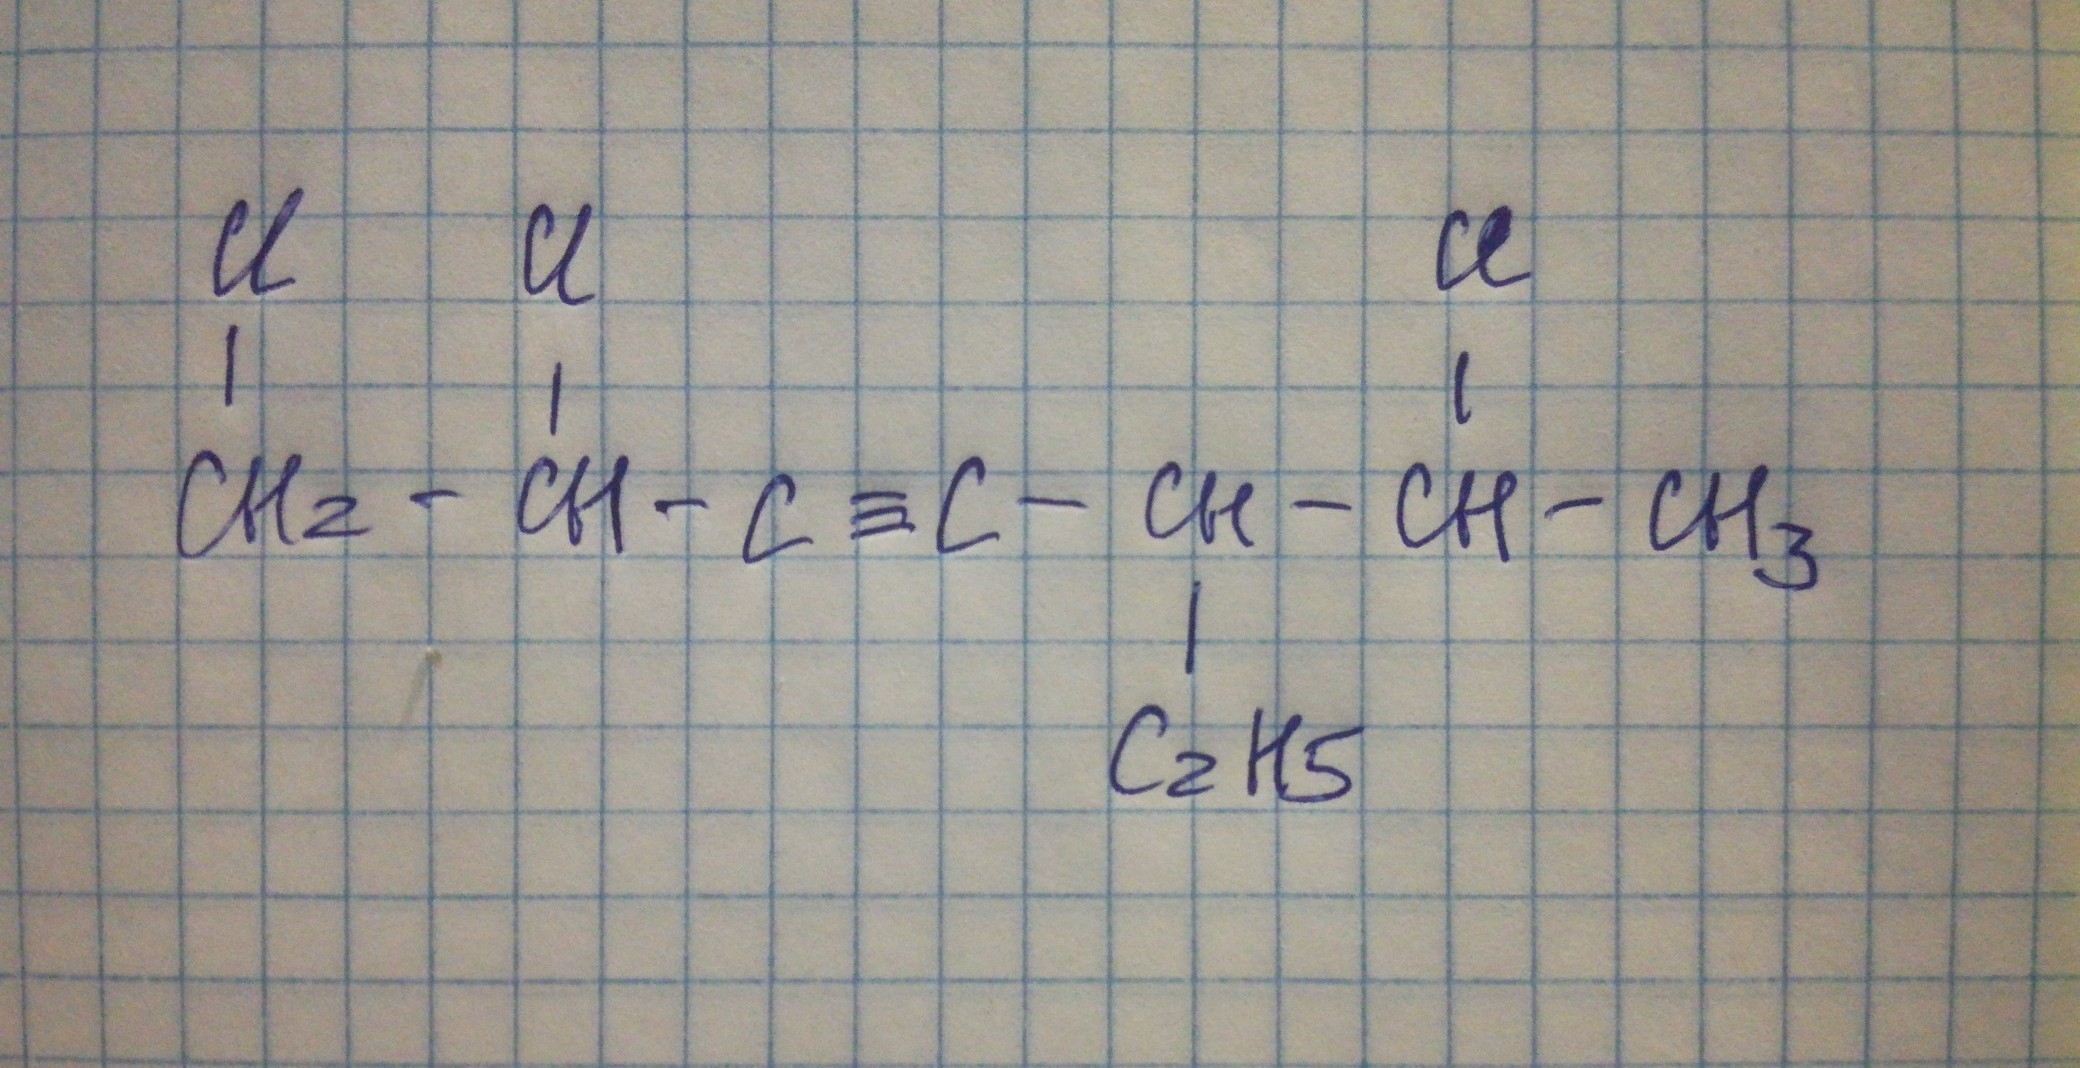 Cl Cl Cl
| | |
CH2 - CH - C ≡ C - CH - CH - CH3
|
C2H5